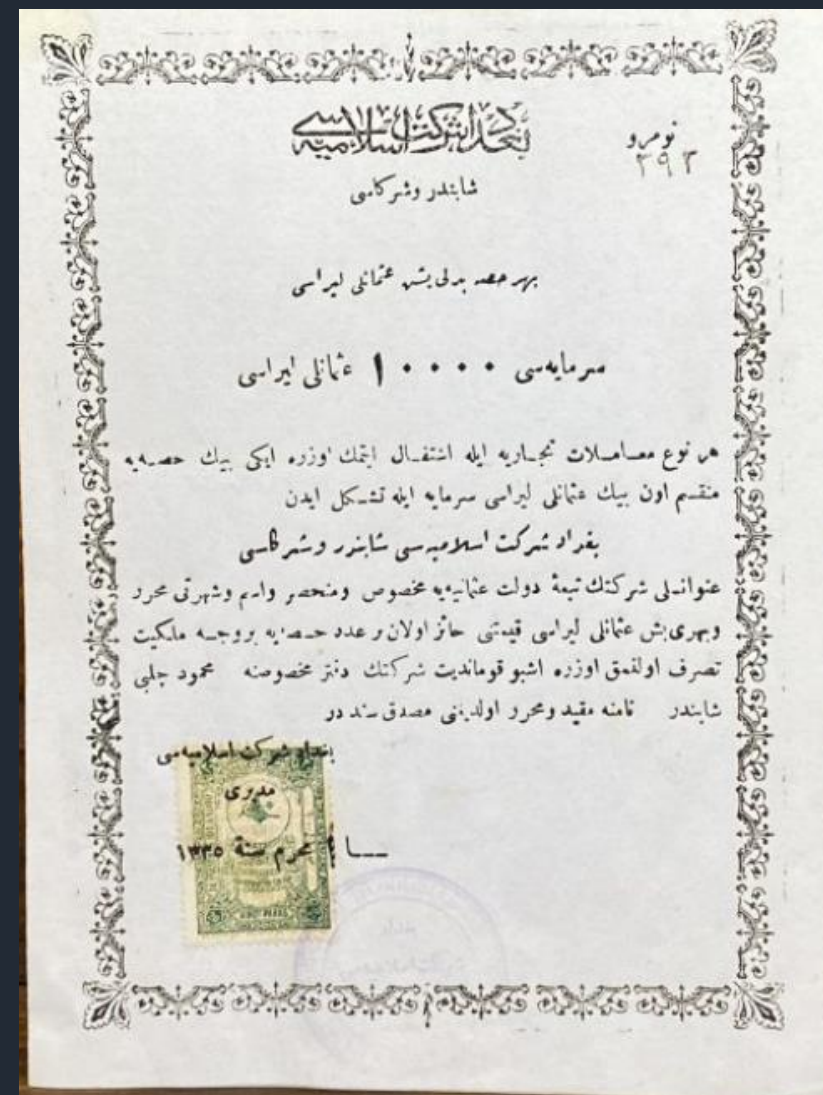 نومرو
٢٩٢
بغداد شركت اسلاميه‌سى
شابندر وشركاسى
بهر حصه بدلى بش عثمانلى ليراسى
سرمايه‌سى ١٠٠٠٠ عثمانلى ليراسى
هر نوع معاملات تجاريه ايله اشتغال ايتمك اوزره ايكى بيك حصه‌يه
منقسم اون بيك عثمانلى ليراسى سرمايه ايله تشكل ايدن
بغداد شركت اسلاميه‌سى شابندر وشركاسى
عنوانلى شركتك تبعۀ دولت عثمانيه‌يه مخصوص ومنحصر واسم وشهرتى محرر
وبهرى بش عثمانلى ليراسى قيمتى حائز اولان بر عدد حصه‌يه بروجه ملكيت
تصرف اولنمق اوزره اشبو قومانديت شركتك دفتر مخصوصنه محمود جلبى
شابندر نامنه مقيد ومحرر اولديغنى مصدق سند در
بغداد شركت اسلاميه‌سى
مديرى
محرم سنة ١٣٣٥